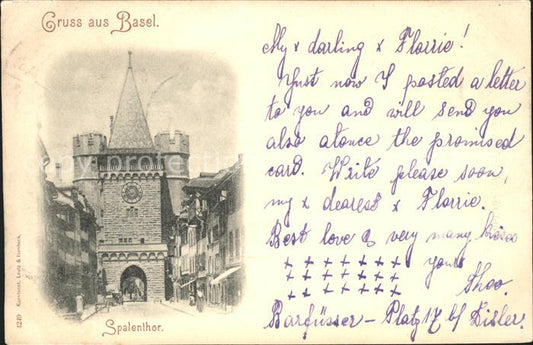 Gruss aus Basel.
My x darling x Florrie!
Just now I posted a letter
to you and will send you
also atonce the promised
card. Write please soon,
my x dearest x Florrie.
Best love & very many kisses
+ + + + + + + yours
+ + + + + + + Theo.
+ + + + + + +
Barfüsser - Platz 17 b/ Disler.
Spalenthor.
1249 Kunstanst. Lautz &